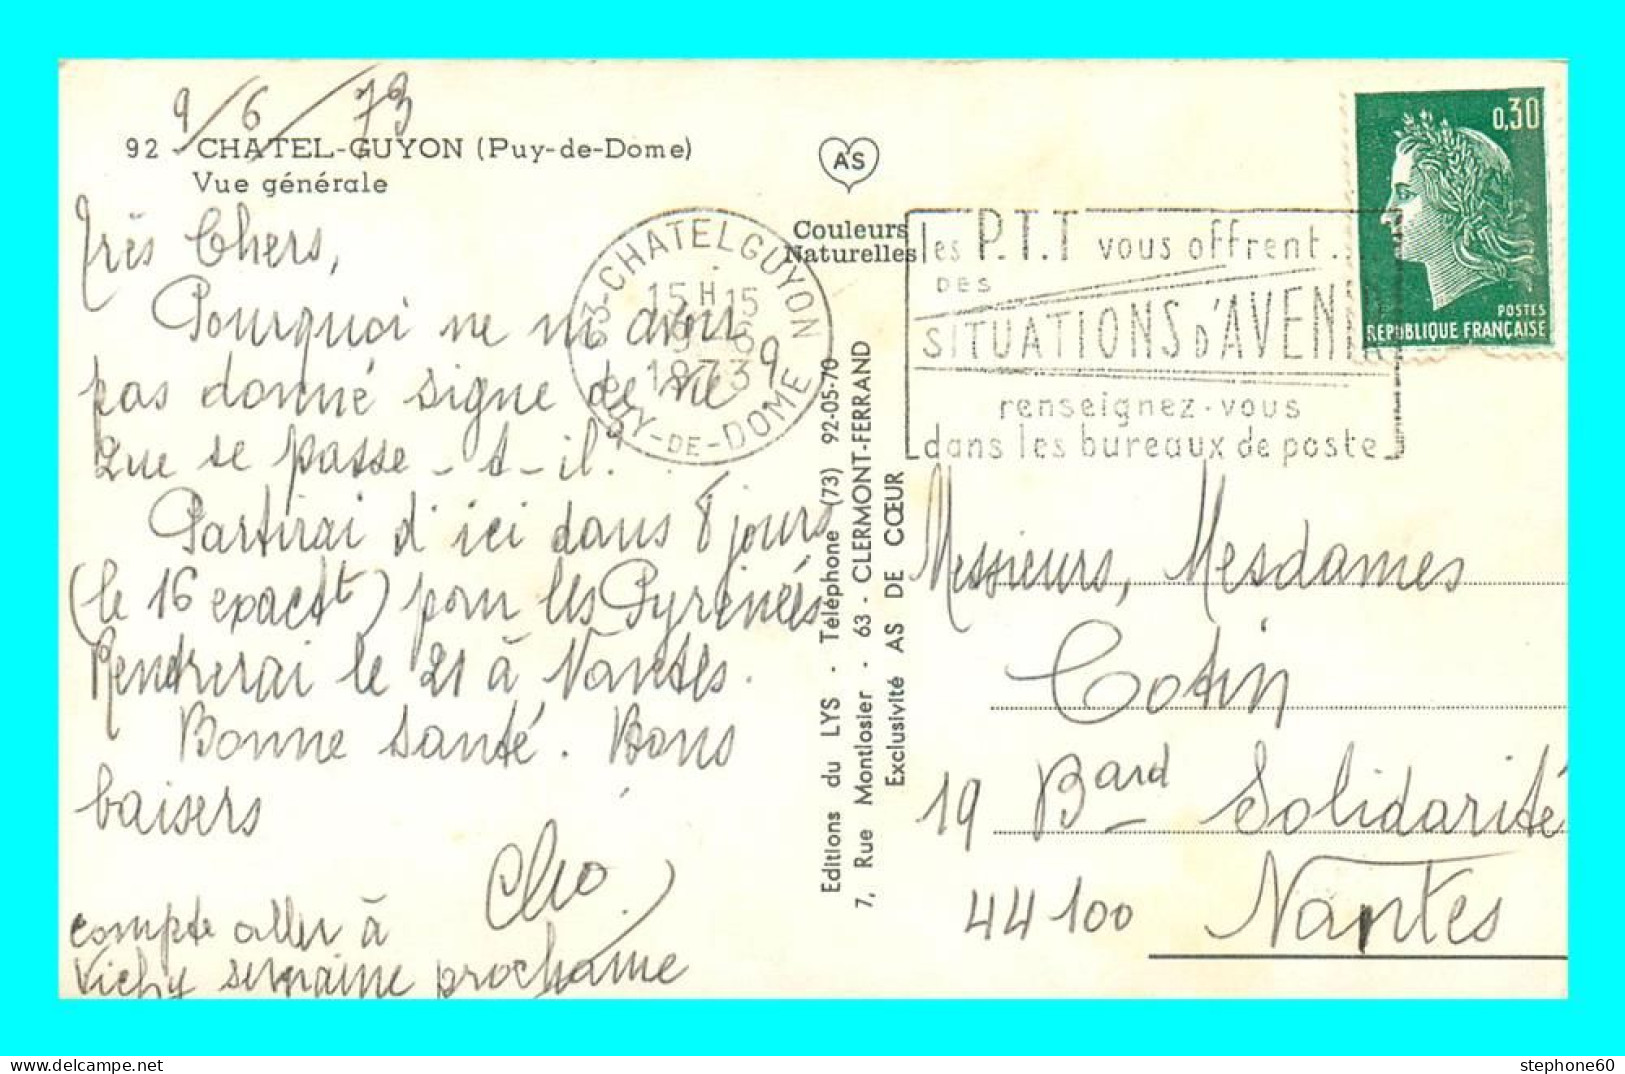 9/6/73
92 - CHATEL-GUYON (Puy-de-Dome)
Vue générale
Très Chers,
Pourquoi ne m'avoir
pas donné signe de vie
Que se passe-t-il?
Partirai d'ici dans 8 jours
(le 16 exact) pour les Pyrénées
Rendrerai le 21 à Nantes.
Bonne santé. Bons
baisers
compte aller à
Vichy semaine prochaine
AS
Couleurs
Naturelles
63-CHATELGUYON
15 H 15
9-6
1973
PUY-DE-DOME
les P.T.T vous offrent..
DES
SITUATIONS D'AVENIR
renseignez-vous
dans les bureaux de poste
0,30
POSTES
REPUBLIQUE FRANÇAISE
Editions du LYS - Téléphone (73) 92-05-70
7, Rue Montlosier - 63 - CLERMONT-FERRAND
Exclusivité AS DE CŒUR
Messieurs, Mesdames
Cotin
19 Bard Solidarité
44100 Nantes
stephone60